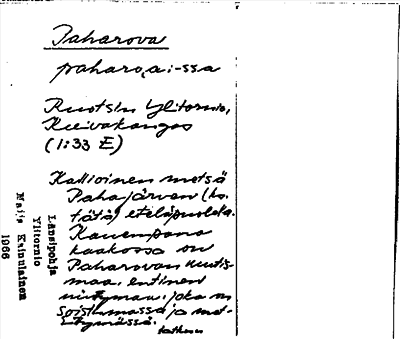 Paharova
paharo̬a: -ssa
Ruotsin Ylitornio,
Kuivakangas
(1:33 E)
Kallioinen metsä
Pahajärven (ks.
tätä) eteläpuolella.
Kauempana
kaakossa on
Paharovan uutis-
maa, entinen
niittymaa, joka on
soistumassa ja met-
sittymässä.
Länsipohja
Ylitornio
Maija Kainulainen
1966